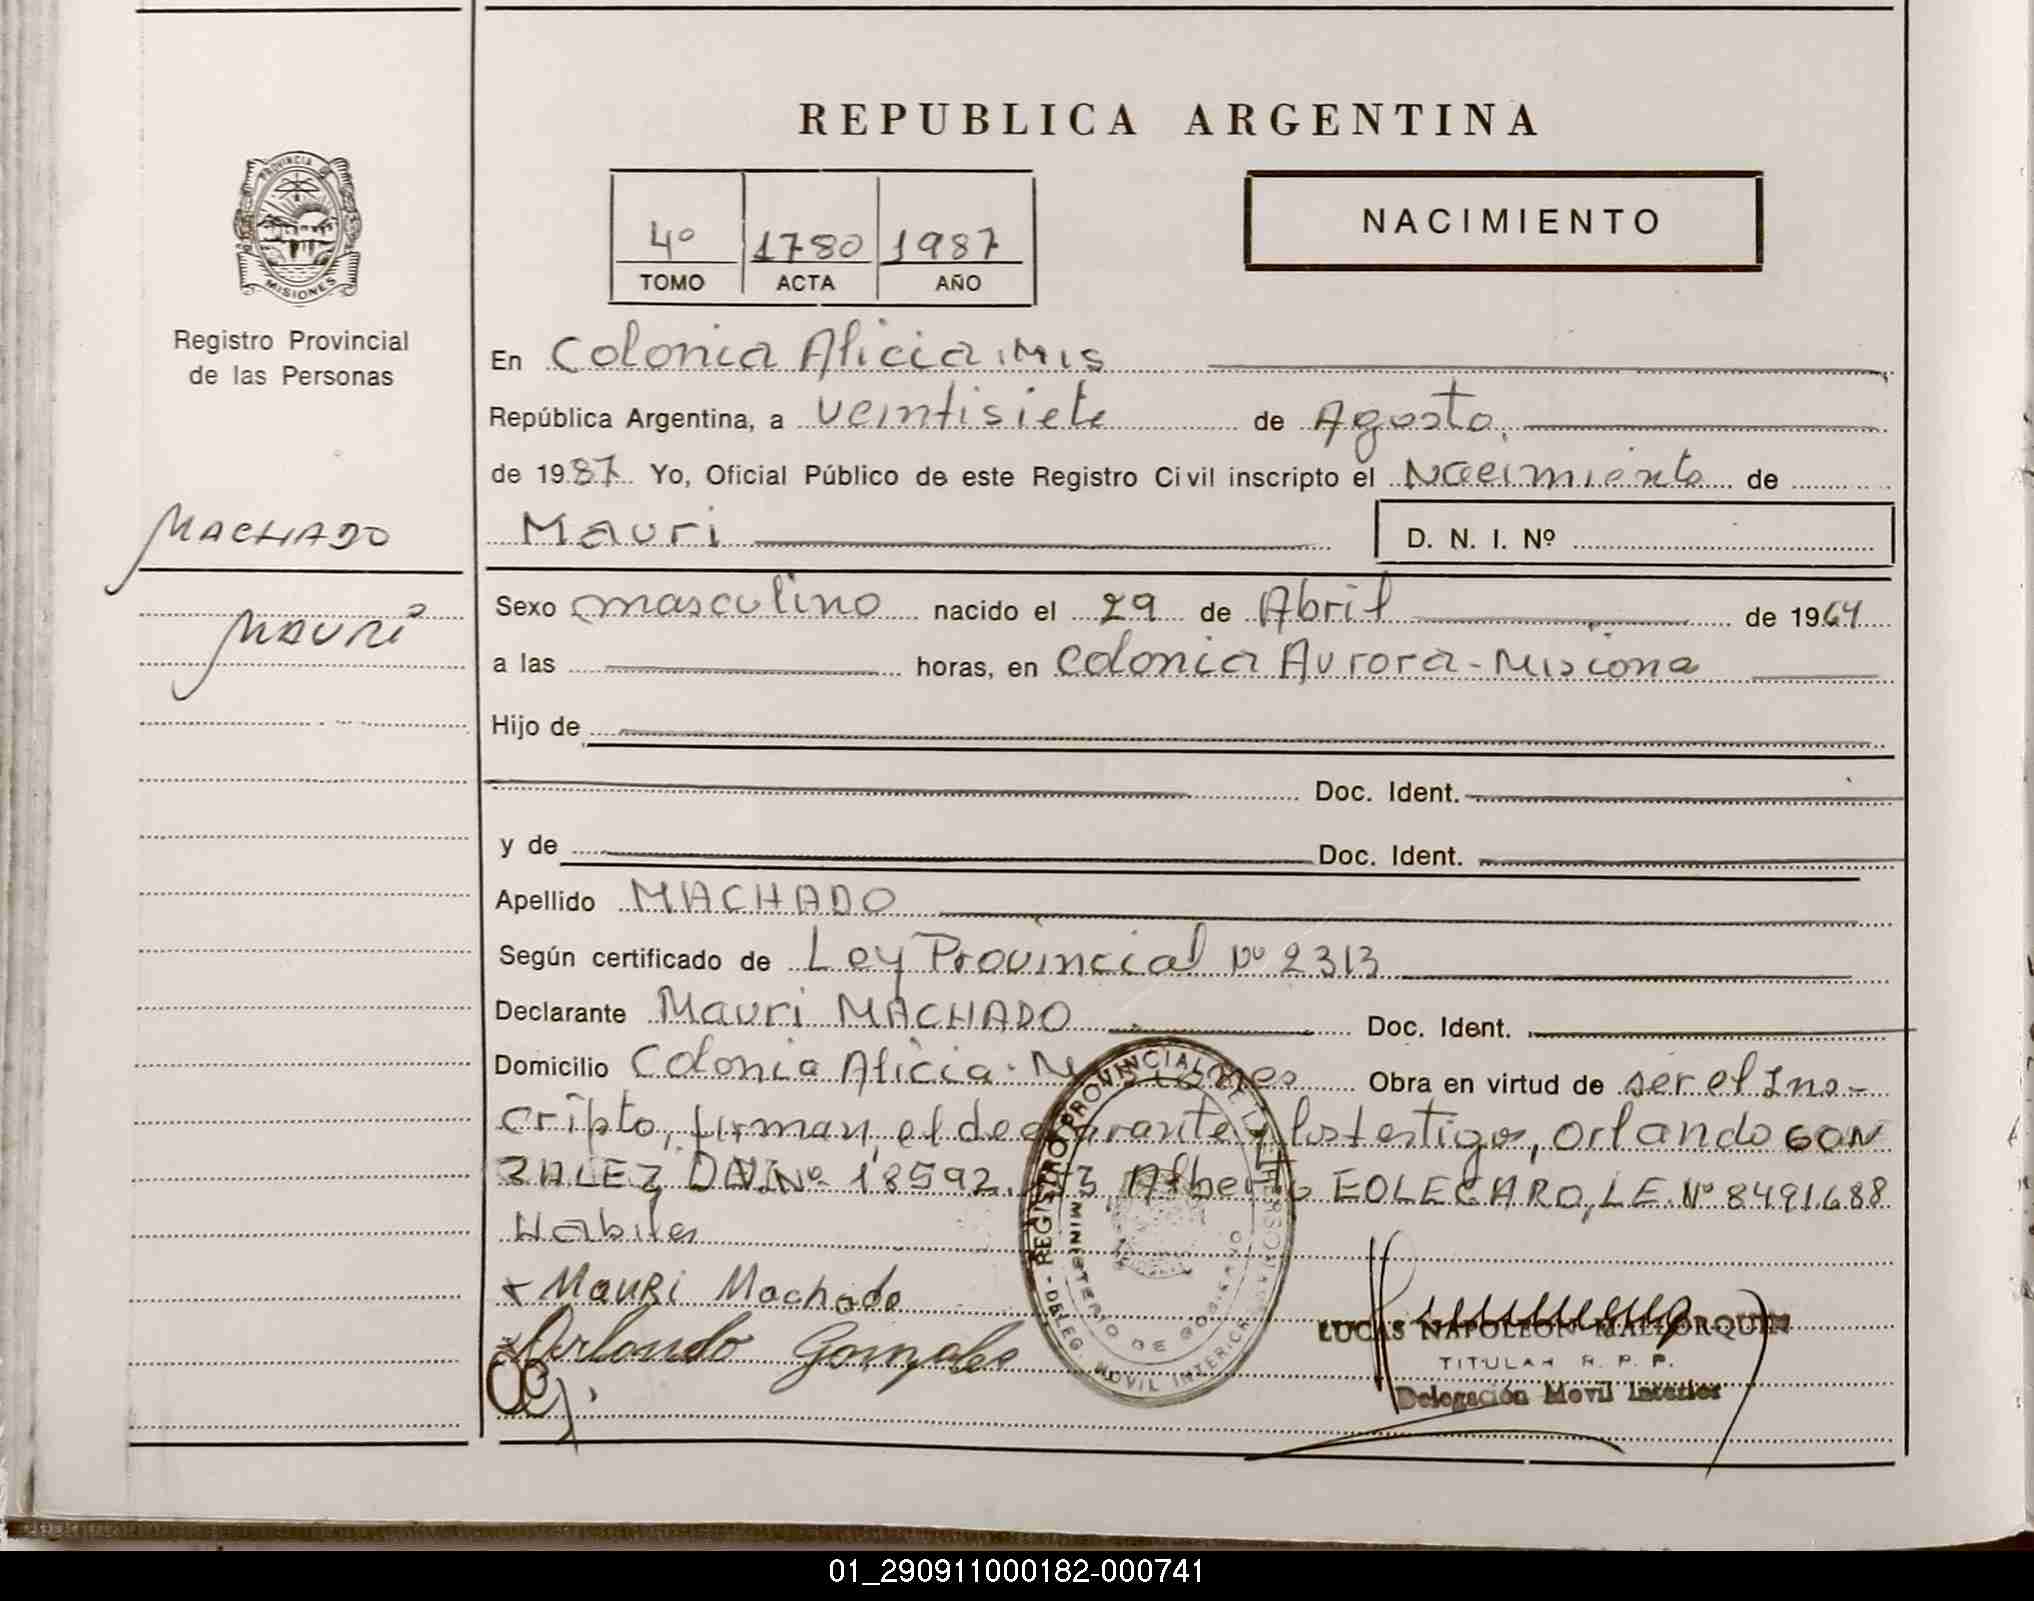 REPUBLICA ARGENTINA
PROVINCIA DE
MISIONES
Registro Provincial
de las Personas
4º 1780 1987
TOMO ACTA AÑO
NACIMIENTO
En Colonia Alicia, Mis
República Argentina, a veintisiete de Agosto,
de 1987. Yo, Oficial Público de este Registro Civil inscripto el Nacimiento de
MACHADO
Mauri D. N. I. Nº
Mauri
Sexo masculino nacido el 29 de Abril de 1964
a las horas, en Colonia Aurora - Misione
Hijo de
Doc. Ident.
y de Doc. Ident.
Apellido MACHADO
Según certificado de Ley Provincial Nº 2313
Declarante Mauri MACHADO Doc. Ident.
Domicilio Colonia Alicia - Misiones Obra en virtud de ser el Ins-
cripto, firman, el declarante y los testigos, Orlando GON
ZALEZ DNI Nº 18592. Alberto EOLEGARO, LE. Nº 8491.688
Habiles
x Mauri Machado
Orlando Gonzales
REGISTRO PROVINCIAL DE LAS PERSONAS
MINISTERIO DE GOBIERNO
DELEG. MOVIL INTERIOR
LUCAS NAPOLEON MALLORQUIN
TITULAR R. P. P.
Delegación Movil Interior
01_290911000182-000741